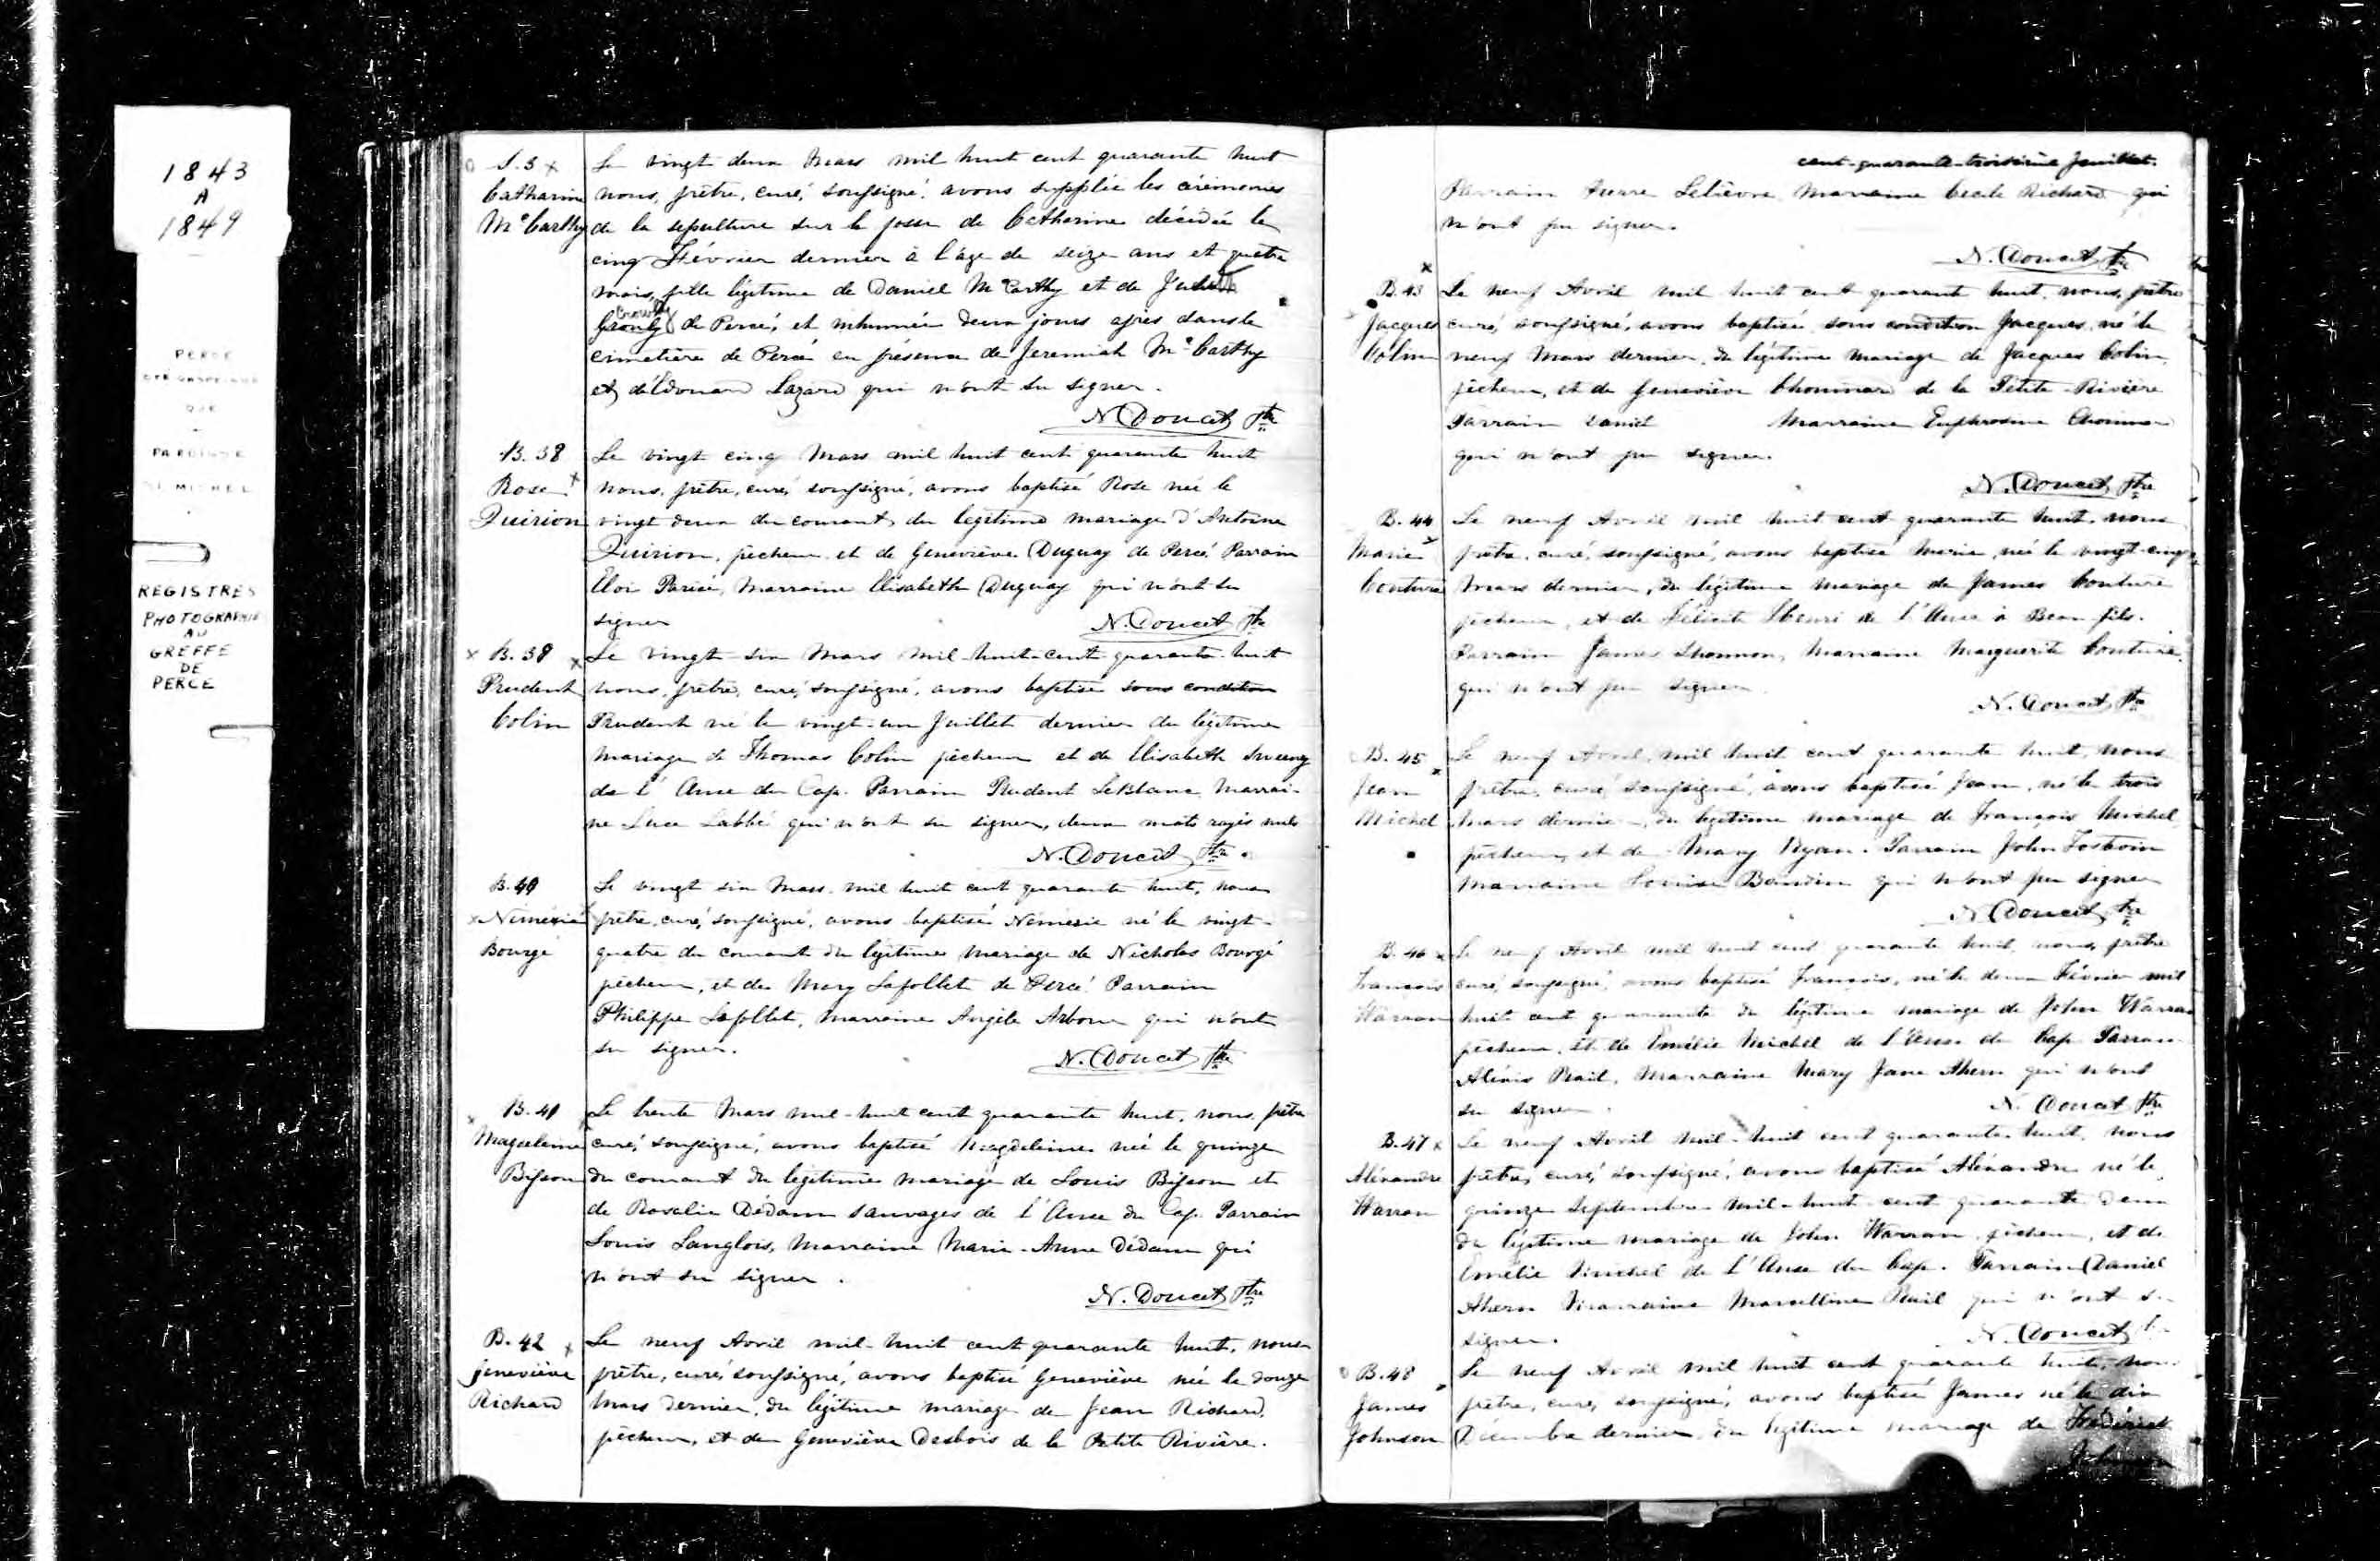 1843
A
1849
PERCE
QUE
-
PAROISSE
ST MICHEL
REGISTRES
PHOTOGRAPHIE
AU
GREFFE
DE
PERCE
S. 5
Catharine
McCarthy
Le vingt deux Mars mil huit cent quarante huit
nous, prêtre, curé, soussigné, avons supplée les cérémonies
de la sepulture sur la fosse de Catherine décédée le
cinq Février dernier à l'âge de seize ans et quatre
mois, fille légitime de Daniel McCarthy et de
Crowly
de Percé, et inhumée deux jours après dans le
cimetière de Percé en présence de Jeremiah McCarthy
et d'Edouard Lazard qui n'ont su signer.
N. Doucet Ptre
B. 38
Rose
Quirion
Le vingt cinq Mars mil huit cent quarante huit
nous, prêtre, curé, soussigné, avons baptisé Rose née le
vingt deux du courant, du légitime mariage d'Antoine
Quirion, pêcheur et de Geneviève Duguay de Percé. Parrain
Eloi Parisé, Marraine Elisabeth Duguay qui n'ont su
signer
N. Doucet Ptre
B. 39
Prudent
Colin
Le vingt-six Mars mil-huit-cent quarante-huit
nous, prêtre, curé, soussigné, avons baptisé sous condition
Prudent né le vingt-un Juillet dernier du légitime
mariage de Thomas Colin pêcheur et de Elisabeth Sweeny
de l'Anse du Cap. Parrain Prudent LeBlanc, Marrai-
ne Luce Labbé qui n'ont su signer, deux mots rayés nuls
N. Doucet Ptre
B. 40
Némésie
Bourgé
Le vingt six Mars mil huit cent quarante huit, nous
prêtre, curé, soussigné, avons baptisé Némésie né le vingt-
quatre du courant du légitime mariage de Nicholas Bourgé
pêcheur, et de Mary Lafollet de Percé. Parrain
Philippe Lafollet, marraine Angèle Arbour qui n'ont
su signer.
N. Doucet Ptre
B. 41
Magdeleine
Bisson
Le trente Mars mil-huit cent quarante huit, nous, prêtre
curé, soussigné, avons baptisé Magdeleine née le quinze
du courant du légitime mariage de Louis Bisson et
de Rosalie Dédam sauvages de l'Anse du Cap. Parrain
Louis Langlois, Marraine Marie-Anne Dédam qui
n'ont su signer.
N. Doucet Ptre
B. 42
Geneviève
Richard
Le neuf Avril mil-huit cent quarante huit, nous
prêtre, curé, soussigné, avons baptisé Geneviève née le douze
Mars dernier, du légitime mariage de Jean Richard,
pêcheur, et de Geneviève Desbois de la Petite Rivière.
cent-quarante-troisième feuillet.
Parrain Pierre Lelièvre, Marraine Cecile Richard qui
n'ont pu signer.
N. Doucet Ptre
B. 43
Jacques
Colin
Le neuf Avril mil huit cent quarante huit, nous, prêtre
curé, soussigné, avons baptisé sous condition Jacques, né le
neuf Mars dernier, du légitime mariage de Jacques Colin,
pêcheur, et de Geneviève Chouinard de la Petite-Rivière
Parrain Daniel Marraine Euphrosine Chouinard
qui n'ont pu signer.
N. Doucet Ptre
B. 44
Marie
Couture
Le neuf Avril mil huit cent quarante huit, nous
prêtre, curé, soussigné, avons baptisé Marie, née le vingt-cinq
Mars dernier, du légitime mariage de James Couture
pêcheur, et de de l'Anse à Beau fils.
Parrain James Marraine Marguerite Couture
qui n'ont pu signer.
N. Doucet Ptre
B. 45
Jean
Michel
Le neuf Avril, mil huit cent quarante huit, nous
prêtre, curé, soussigné, avons baptisé Jean, né le trois
Mars dernier, du légitime mariage de François Michel
pêcheur, et de Mary Ryan. Parrain John
Marraine Louise qui n'ont pu signer
N. Doucet Ptre
B. 46
Francois
Warran
Le neuf Avril mil huit cent quarante huit, nous, prêtre
curé, soussigné, avons baptisé Francois, né le deux Février mil
huit cent quarante du légitime mariage de John Warran
pêcheur, et de Emélie Michel de l'Anse du Cap. Parrain
Alexis Rail, Marraine Mary Jane Ahern qui n'ont
su signer.
N. Doucet Ptre
B. 47
Alexandre
Warran
Le neuf Avril mil-huit cent quarante-huit, nous
prêtre, curé, soussigné, avons baptisé Alexandre né le
quinze Septembre mil-huit-cent quarante deux
du légitime mariage de John Warran pêcheur, et de
Emélie Michel de l'Anse du Cap. Parrain Daniel
Ahern Marraine Marcelline Rail qui n'ont su
signer.
N. Doucet
B. 48
James
Johnson
Le neuf Avril mil huit cent quarante huit, nous
prêtre, curé, soussigné, avons baptisé James né le dix
Décembre dernier, du légitime mariage de Frédérick
Johnson